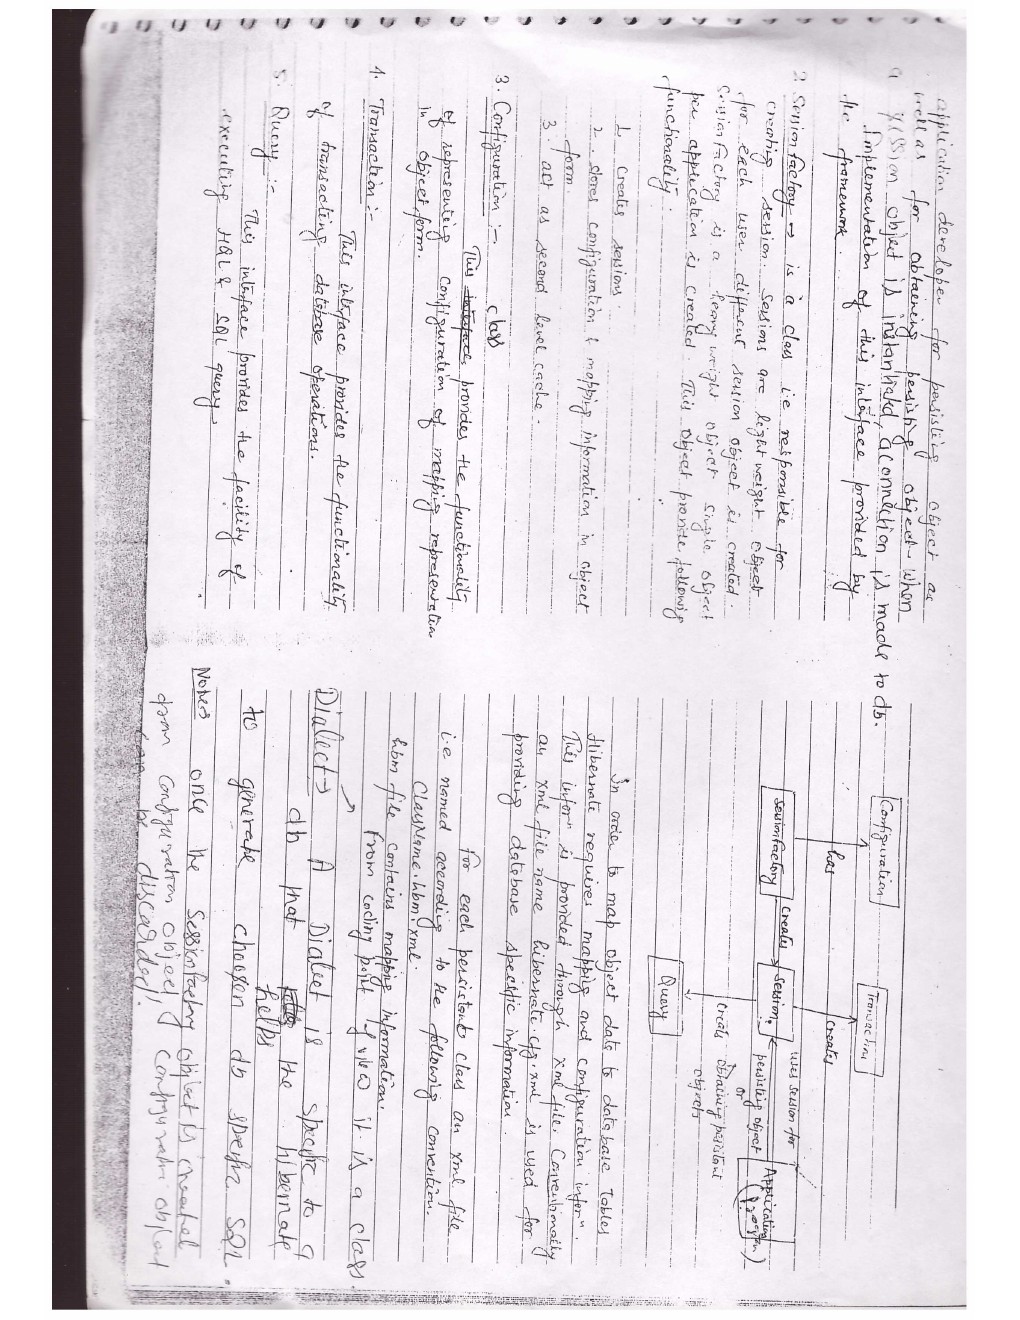 application developer for persisting object as
well as for obtaining persisting object. When
a session object is instantiated, a connection is made to db.
Implementation of this interface provided by
the framework.
2. Session factory → is a class i.e responsible for
creating session. Sessions are light weight object
for each user different session object is created.
Session Factory is a heavy weight object single object
per application is created. This object provide following
functionality.
1. Creates sessions.
2. stores configuration & mapping information in object
form.
3. act as second level cache.
3. Configuration :-
class
This interface provides the functionality
of representing configuration of mapping representation
in object form.
4. Transaction :-
This interface provides the functionality
of transacting database operations.
5. Query :-
This interface provides the facility of
executing HQL & SQL query.
Configuration
Transaction
has
creates
Sessionfactory creates Session
uses session for
persisting object
or
obtaining persistent
objects
Application
(Program)
creates
Query
In order to map object data to database tables
Hibernate requires mapping and configuration inforⁿ.
This inforⁿ is provided through xml file. Conventionally
an xml file name hibernate.cfg.xml is used for
providing database specific information.
for each persistant class an xml file
i.e named according to the following convention.
ClassName.hbm.xml.
hbm file contains mapping information.
from coding point of view it is a class.
Dialect → A Dialect is specific to a
db that helps the hibernate
to generate choosen db specific SQL.
Notes once the Session factory object is created
from configuration object, configuration object
can be discarded.